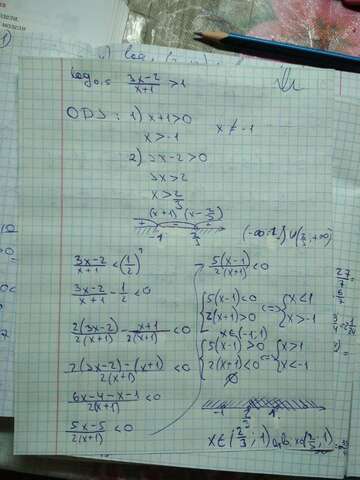 log₀,₅ (3x-2)/(x+1) > 1
ОДЗ: 1) x+1>0
x>-1
x ≠ -1
2) 3x-2>0
3x>2
x>2/3
(x+1) (x-2/3)
+ - +
-1 2/3
(-∞;-1)∪(2/3;+∞)
(3x-2)/(x+1) < (1/2)¹
(3x-2)/(x+1) - 1/2 < 0
2(3x-2)/2(x+1) - (x+1)/2(x+1) < 0
(2(3x-2)-(x+1))/2(x+1) < 0
(6x-4-x-1)/2(x+1) < 0
(5x-5)/2(x+1) < 0
5(x-1)/2(x+1) < 0
{5(x-1)<0 <=> {x<1
{2(x+1)>0 {x>-1
x∈(-1;1)
{5(x-1)>0 <=> {x>1
{2(x+1)<0 {x<-1
∅
-1 2/3 1
x∈(2/3;1)